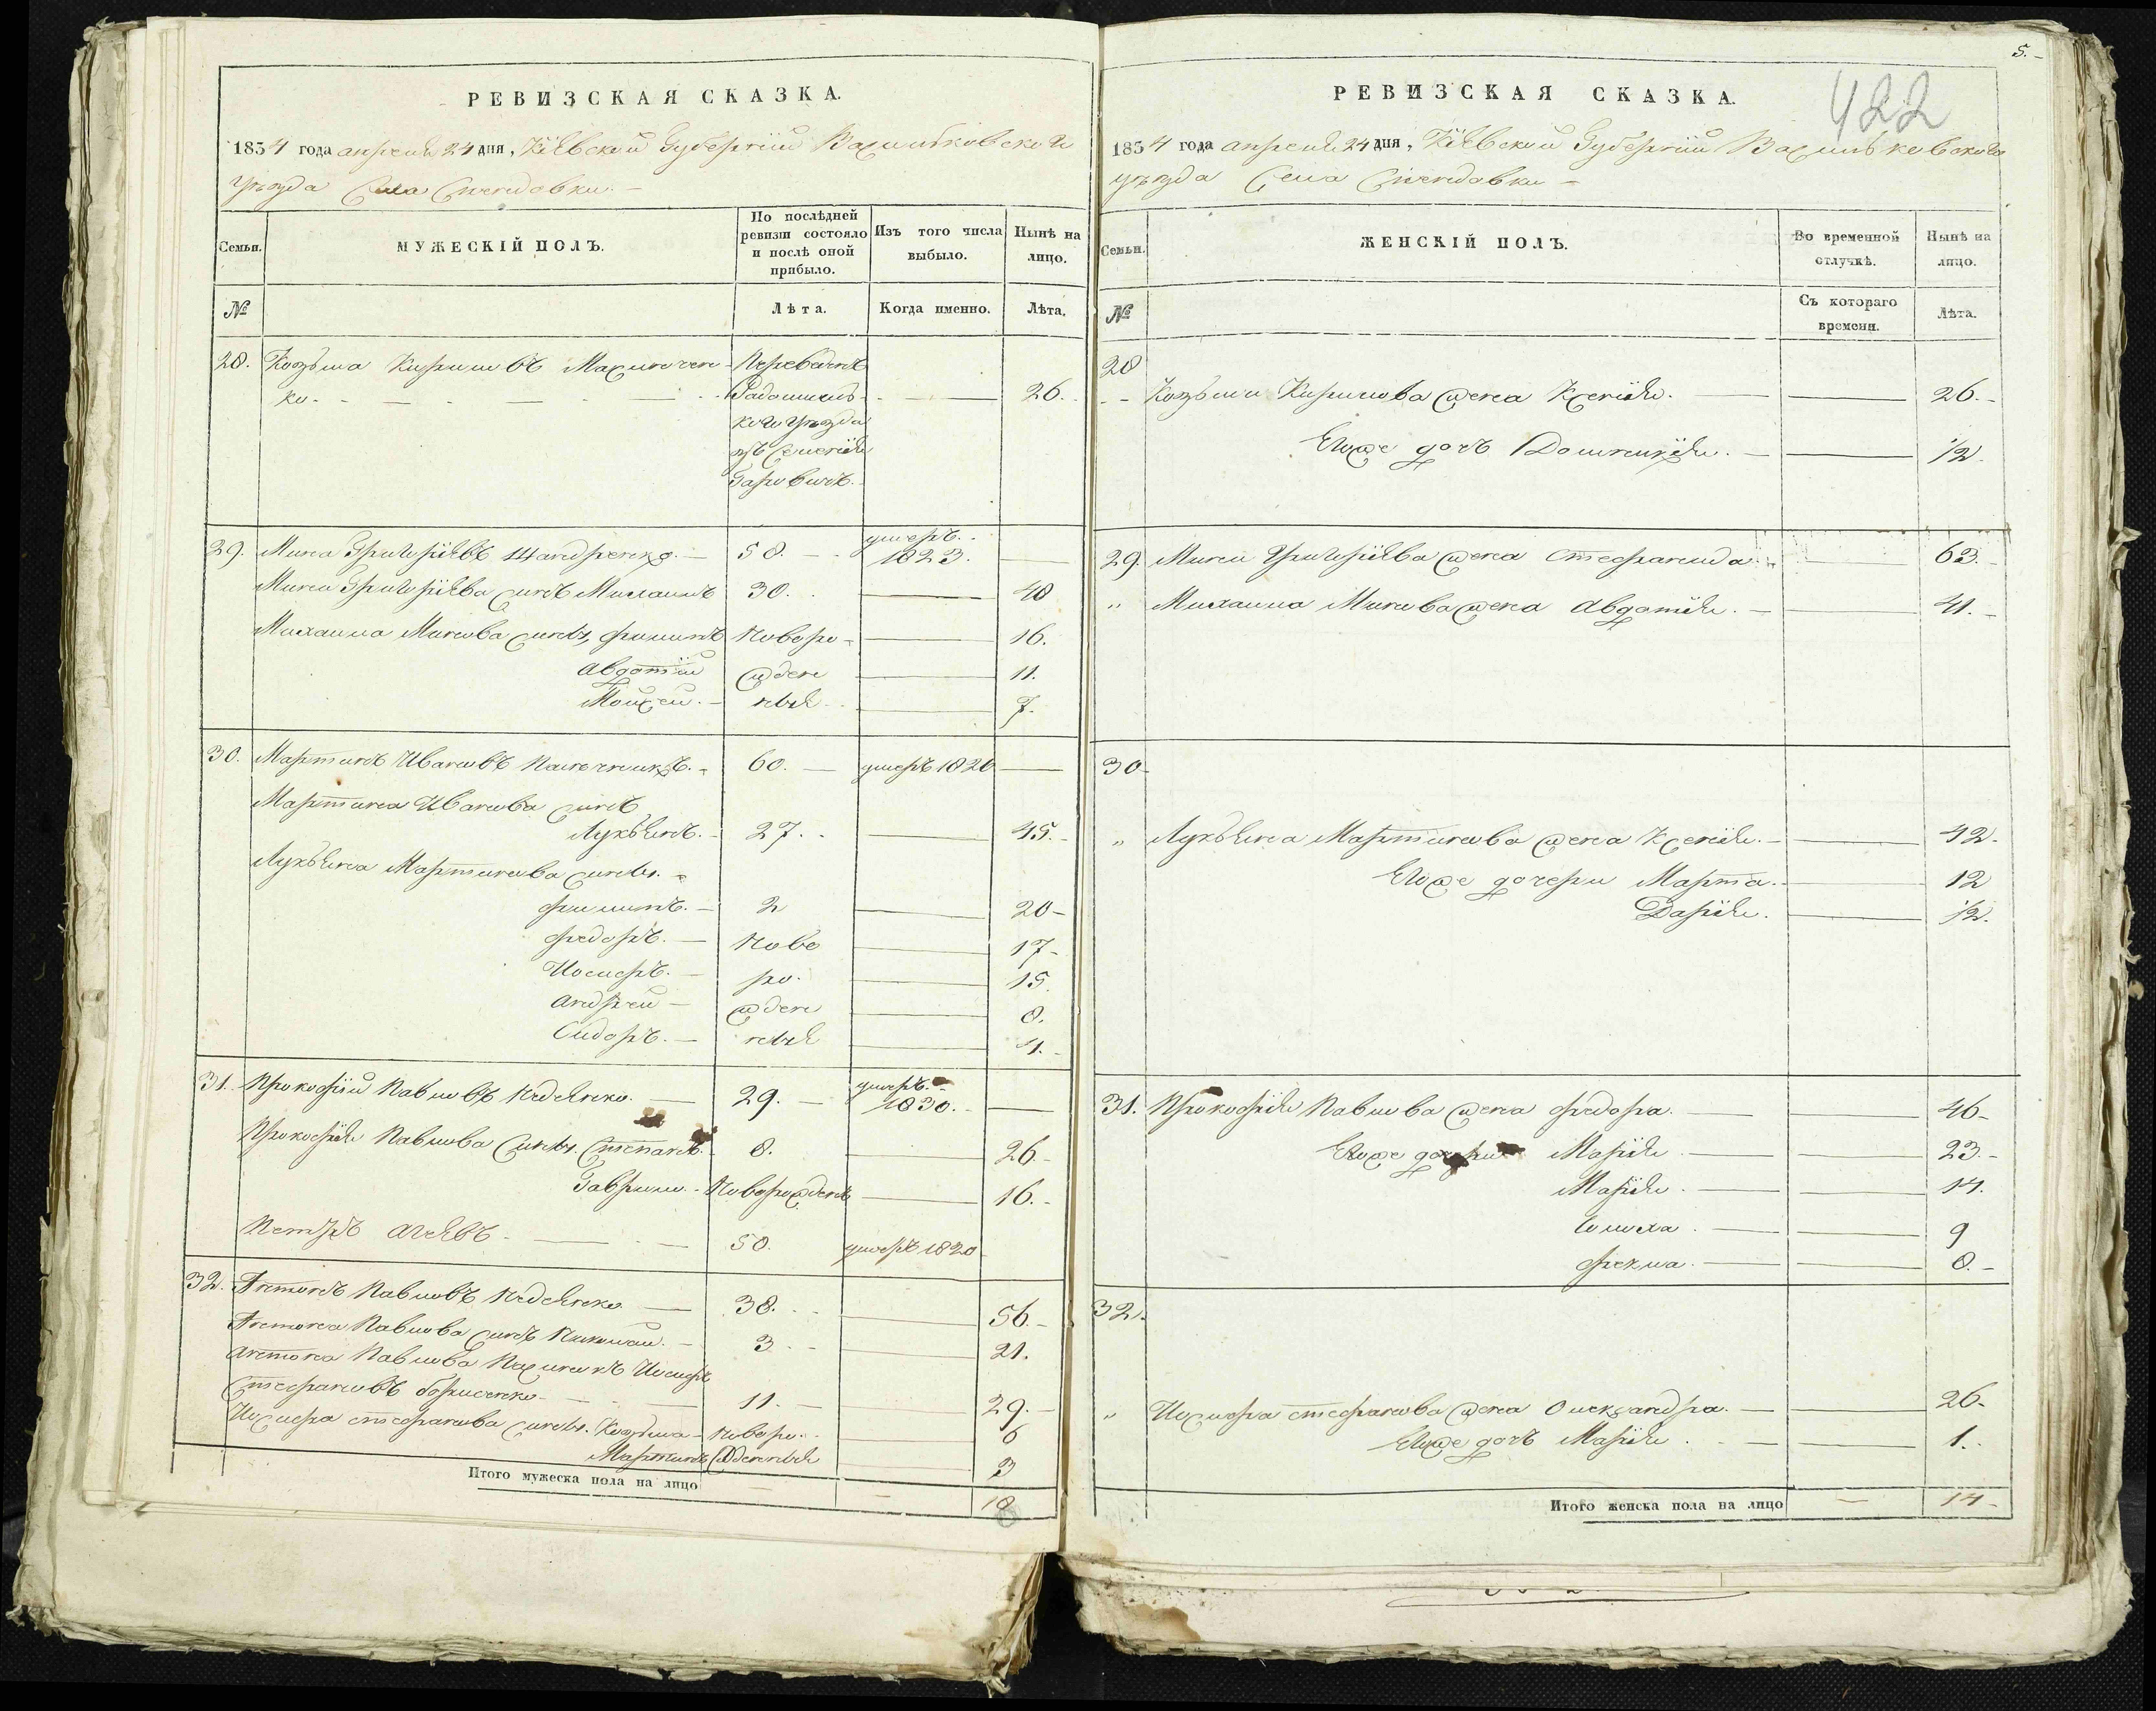 РЕВИЗСКАЯ СКАЗКА.
1834 года апреля 24 дня, Кіевской Губерніи Васильковского
уѣзда Села
Семьи.
МУЖЕСКІЙ ПОЛЪ.
По послѣдней ревизіи состояло и послѣ оной прибыло.
Изъ того числа выбыло.
Нынѣ на лицо.
№
Лѣта.
Когда именно.
Лѣта.
28. Козьма Кириловъ Переведенъ
ко. 26.
кого уѣзда
изъ
29. Мина Григоріевъ 58. умеръ 1823.
Мини Григоріева сынъ Михаилъ 30. 48
Михаила Минова сыны, Филипъ Новоро 16.
Авдотій жден 11.
Мойсей ныя 7.
30. Мартинъ Ивановъ 60. умеръ 1820
Мартина Иванова сынъ
Лукьянъ. 27. 45.
Лукьяна Мартинова сыны.
Филипъ. 2 20
Федоръ. Ново 17
Иосифъ. ро. 15.
Андрей жден 8.
Сидоръ. ныя 4.
31. Прокофій Павловъ Неделенко. 29. умеръ 1830.
Прокофія Павлова сыны. Степанъ 8. 26.
Гаврило. Новорожденъ 16.
Петръ 50. умеръ 1820
32. Антонъ Павловъ Неделенко 38. 56.
Антона Павлова сынъ Николай. 3 21.
Антона Павлова Пасинокъ Иосифъ
Стефановъ Борисенко 11. 29.
Иосифа Стефанова сыны. Козьма Новоро 6
Мартинъ жденныя 3
Итого мужеска пола на лицо 18
5.
422
РЕВИЗСКАЯ СКАЗКА.
1834 года апреля 24 дня, Кіевской Губерніи Васильковского
уѣзда Села
Семьи.
ЖЕНСКІЙ ПОЛЪ.
Во временной отлучкѣ.
Нынѣ на лицо.
№
Съ котораго времени.
Лѣта.
28
Козьми Кирилова жена Ксенія. 26.
Егоже дочь Домникія. 1/2.
29. Мини Григоріева жена Стефанида 63.
" Михаила Минова жена Авдотія. 41.
30
" Лукьяна Мартинова жена Ксенія. 42.
Егоже дочери Марта. 12
Дарія. 1/2.
31. Прокофія Павлова жена Федора. 46
Егоже дочери Марія 23.
Марія. 14.
9
Фекла. 8.
32.
" Иосифа Стефанова жена Олександра. 26
Егоже дочь Марія 1.
Итого женска пола на лицо 14